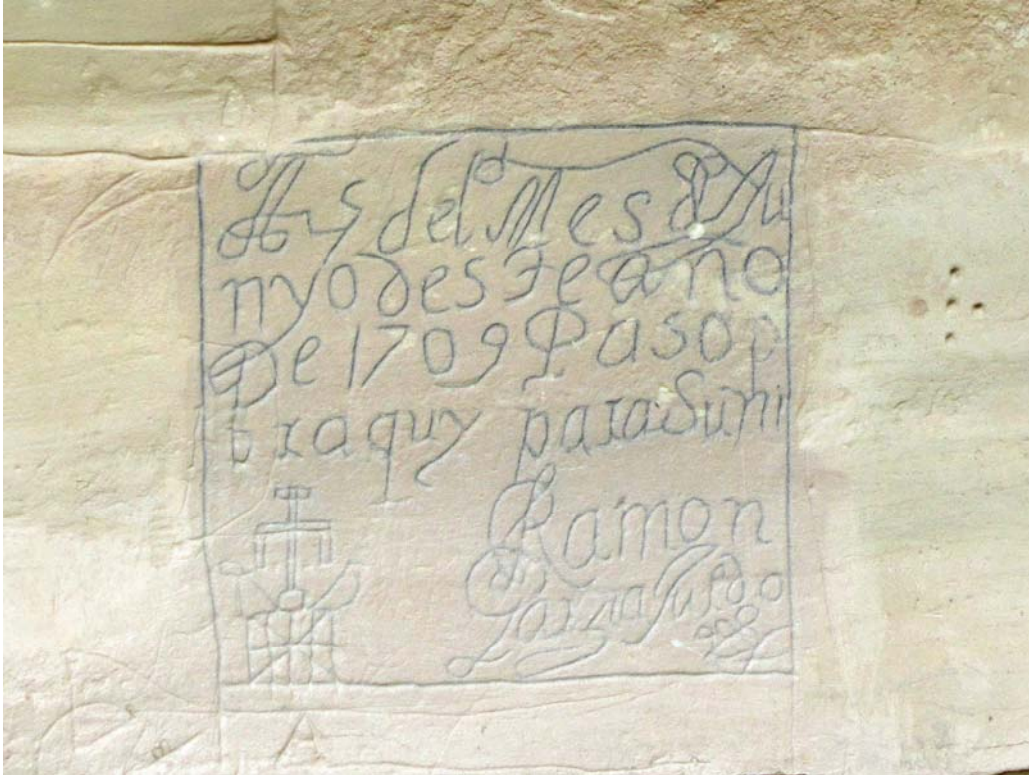 A 5 del Mes d Ju
nyo deste año
De 1709 Paso p
r aquy para Suñi
Ramon
Garzia Jurado